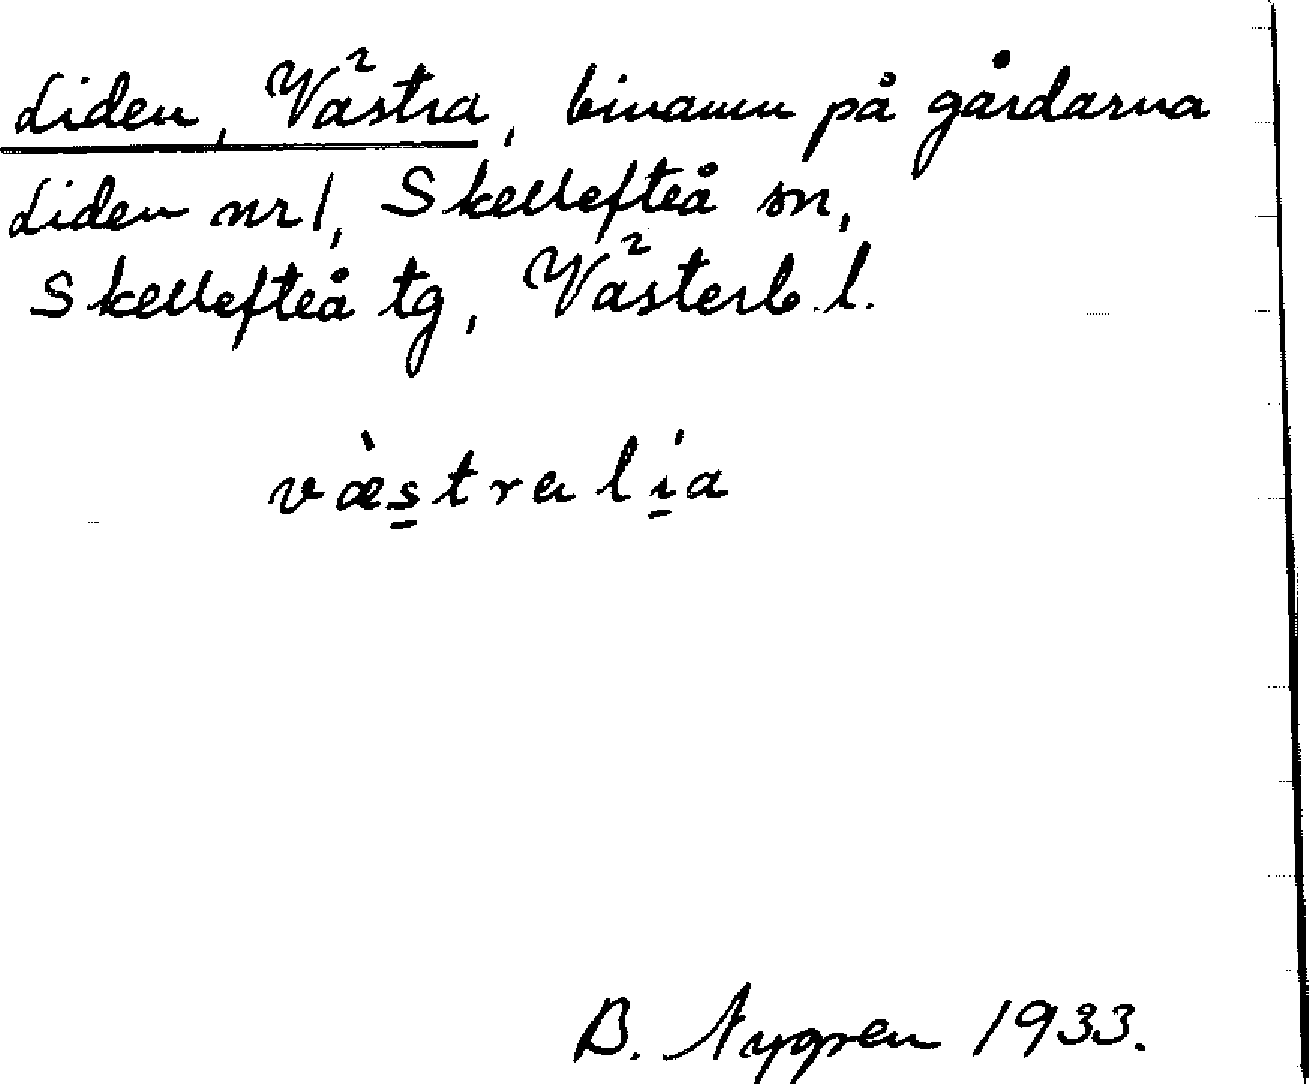 Liden, Västra, binamn på gårdarna
Liden nr 1, Skellefteå sn,
Skellefteå tg, Västerb. l.
væ̀s̲tralí̲a
B. Nygren 1933.